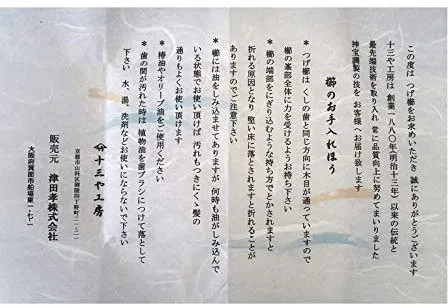 この度は つげ櫛をお求めいただき 誠にありがとうございます
十三や工房は 創業一八八〇年(明治十三年)以来の伝統と
最先端技術を取り入れ 常に品質向上に努めてまいりました
神宝調製の技を お客様へお届け致します
櫛のお手入れほう
＊ つげ櫛は くしの歯と同じ方向に木目が通っていますので
櫛の峯部全体に力を受けるようお持ち下さい
＊ 櫛の端部をにぎり込むような持ち方でとかされますと
折れる原因となり 堅い床に落とされますと折れることが
ありますのでご注意下さい
＊ 櫛には油をしみ込ませてありますが 何時も油がしみ込んで
いる状態でお使い頂けば 汚れもつきにくゝ髪の
通りもよくお使い頂けます
＊ 椿油やオリーブ油をご使用ください
＊ 歯の間が汚れた時は 植物油を歯ブラシにつけて落として
下さい 水、湯、洗剤などお使いにならないで下さい
十三や工房
京都市山科区御陵四丁野町二一ノ二
販売元 津田孝株式会社
大阪府箕面市船場東一ノ七ノ一